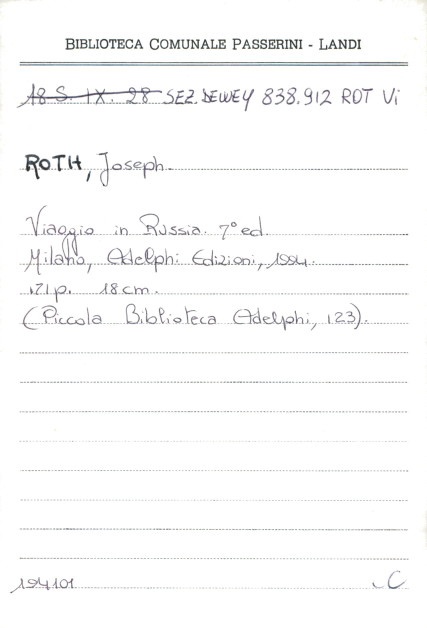 BIBLIOTECA COMUNALE PASSERINI - LANDI
18 S. IX. 28 SEZ. DEWEY 838.912 ROT Vi
ROTH, Joseph.
Viaggio in Russia. 7° ed.
Milano, Adelphi Edizioni, 1994.
171 p. 18 cm.
(Piccola Biblioteca Adelphi, 123).
194101 C